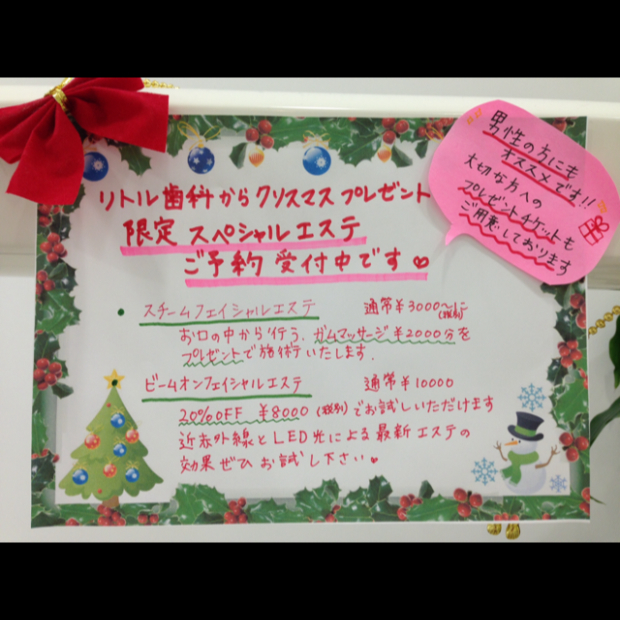 リトル歯科からクリスマスプレゼント
限定 スペシャルエステ
ご予約受付中です♡
男性の方にも
オススメです!!
大切な方への
プレゼントチケットも
ご用意しております
・スチームフェイシャルエステ 通常¥3000〜に(税別)
お口の中から行う、ガムマッサージ¥2000分を
プレゼントで施術いたします.
・ビームオンフェイシャルエステ 通常¥10000
20%OFF ¥8000(税別)でお試しいただけます
近赤外線とLED光による最新エステの
効果ぜひお試し下さい♥